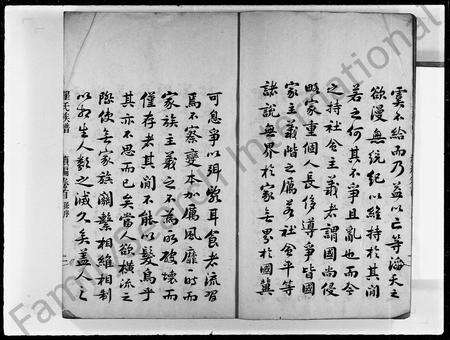 虞不給而乃益以亡等海天之
欲漫無統紀以維持於其間
若之何其不爭且亂也而今
之持社会主義者謂國尚侵
略家重個人長侈導爭皆國
家主義階之厲若社会平等
諸說無界於家無界於國冀
可息爭以弭亂耳食者流習
焉不察變本加厲風靡一時而
家族主義之不為所破壞而
僅存者其間不能以髮焉乎
其亦不思而已矣當人欲橫流之
際使無家族關繫相維相制
以相生人類之滅久矣蓋人之
羅氏族譜
卷首
FamilySearch International